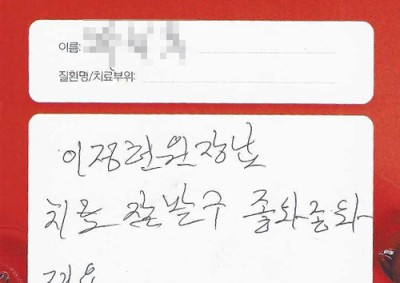 이름:
질환명/치료부위:
이정현원장님
치료 잘받구 좋와좋와